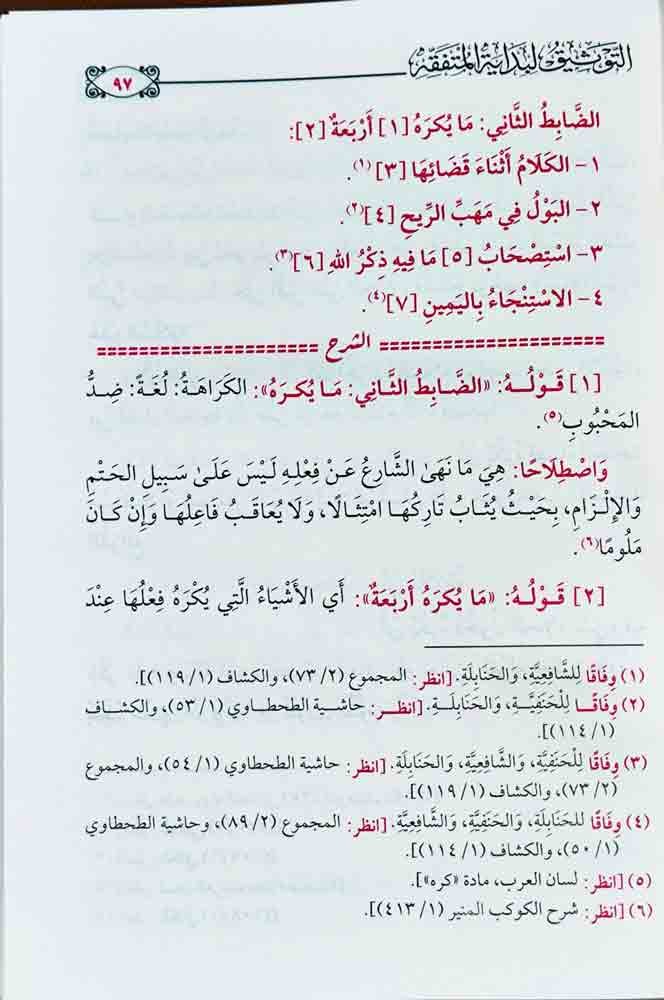 التَّوْثِيقُ لِبِدَايَةِ المُتَفَقِّهِ
٩٧
الضَّابِطُ الثَّانِي: مَا يُكرَهُ [١] أَرْبَعَةٌ [٢]:
١- الكَلَامُ أَثْنَاءَ قَضَائِهَا [٣] (١).
٢- البَوْلُ فِي مَهَبِّ الرِّيحِ [٤] (٢).
٣- اسْتِصْحَابُ [٥] مَا فِيهِ ذِكْرُ اللهِ [٦] (٣).
٤- الاسْتِنْجَاءُ بِاليَمِينِ [٧] (٤).
الشرح
[١] قَوْلُهُ: «الضَّابِطُ الثَّانِي: مَا يُكرَهُ»: الكَرَاهَةُ: لُغَةً: ضِدُّ
المَحْبُوبِ (٥).
وَاصْطِلَاحًا: هِيَ مَا نَهَىٰ الشَّارِعُ عَنْ فِعْلِهِ لَيْسَ عَلَىٰ سَبِيلِ الحَتْمِ
وَالإِلْزَامِ، بِحَيْثُ يُثَابُ تَارِكُهَا امْتِثَالًا، وَلَا يُعَاقَبُ فَاعِلُهَا وَإِنْ كَانَ
مَلُومًا (٦).
[٢] قَوْلُهُ: «مَا يُكرَهُ أَرْبَعَةٌ»: أَي الأَشْيَاءُ الَّتِي يُكْرَهُ فِعْلُهَا عِنْدَ
(١) وِفَاقًا لِلشَّافِعِيَّةِ، وَالحَنَابِلَةِ. [انظر: المجموع (٢/ ٧٣)، والكشاف (١/ ١١٩)].
(٢) وِفَاقًا لِلْحَنَفِيَّةِ، وَالحَنَابِلَةِ. [انظر: حاشية الطحطاوي (١/ ٥٣)، والكشاف
(١/ ١١٤)].
(٣) وِفَاقًا لِلْحَنَفِيَّةِ، وَالشَّافِعِيَّةِ، وَالحَنَابِلَةِ. [انظر: حاشية الطحطاوي (١/ ٥٤)، والمجموع
(٢/ ٧٣)، والكشاف (١/ ١١٩)].
(٤) وِفَاقًا للحَنَابِلَةِ، وَالحَنَفِيَّةِ، وَالشَّافِعِيَّةِ. [انظر: المجموع (٢/ ٨٩)، وحاشية الطحطاوي
(١/ ٥٠)، والكشاف (١/ ١١٤)].
(٥) [انظر: لسان العرب، مادة «كره»].
(٦) [انظر: شرح الكوكب المنير (١/ ٤١٣)].